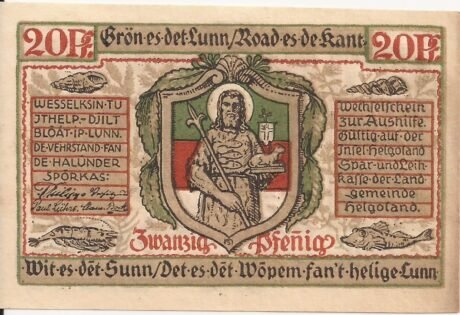 20Pf.
Grön·es·det·Lunn/Road·es·de·Kant·
20Pf.
WESSELKSIN·TU
ÜTHELP·DJILT
BLOAT·IP·LUNN.
DE·VEHRSTAND·FAN
DE·HALUNDER
SPORKAS:
Wechselschein
zur Aushilfe.
Gültig·auf·der
Insel·Helgoland
Spar·und·Leih-
kasse·der·Land
gemeinde
Helgoland.
Zwanzig Pfenig
Wit·es·dët·Sunn/Det·es·dët·Wöpem·fan't·helige·Lunn